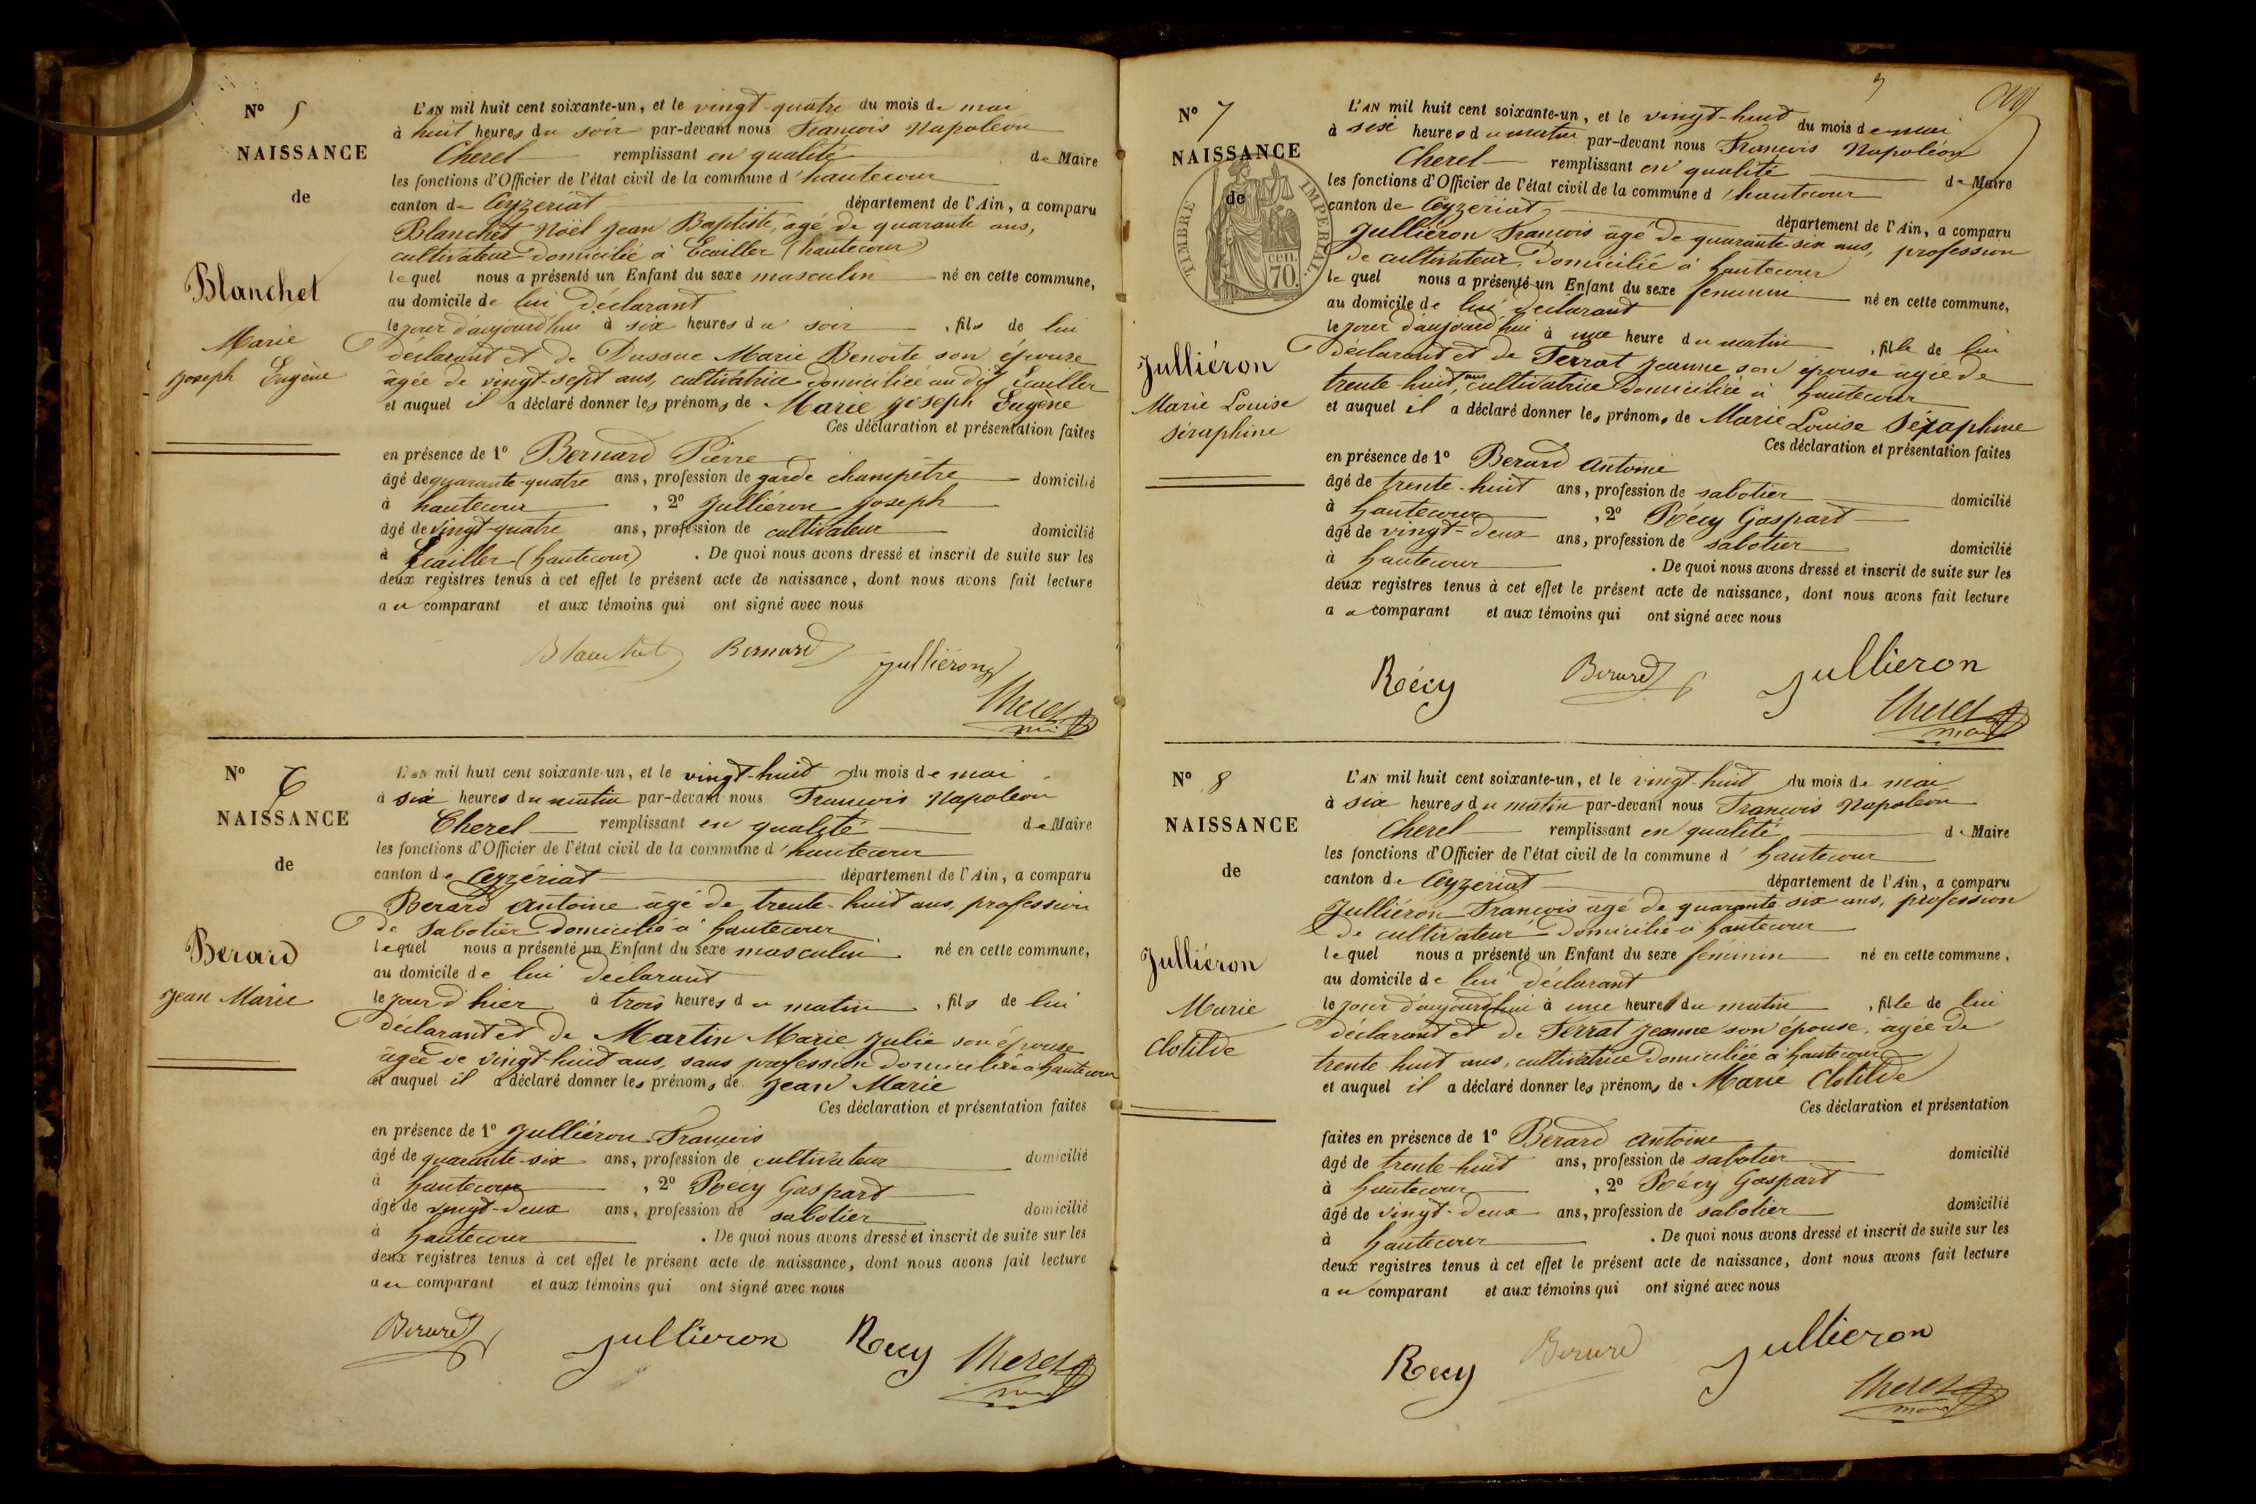 N° 5
NAISSANCE
de
Blanchet
Marie
Joseph Eugène
L'AN mil huit cent soixante-un, et le vingt-quatre du mois de mai
à huit heures du soir par-devant nous François Napoléon
Cherel remplissant en qualité de Maire
les fonctions d'Officier de l'état civil de la commune d'hautecour
canton de Ceyzériat département de l'Ain, a comparu
Blanchet Noël Jean Baptiste, âgé de quarante ans,
cultivateur domicilié à Ecailler (hautecour)
lequel nous a présenté un Enfant du sexe masculin né en cette commune,
au domicile de lui déclarant
le jour d'aujourd'hui à six heures du soir, fils de lui
déclarant et de Dussuc Marie Benoite son épouse
âgée de vingt-sept ans, cultivatrice domiciliée au dit Ecailler
et auquel il a déclaré donner les prénoms de Marie Joseph Eugène
Ces déclaration et présentation faites
en présence de 1° Bernard Pierre
âgé de quarante-quatre ans, profession de garde champêtre domicilié
à hautecour, 2° Julliéron Joseph
âgé de vingt-quatre ans, profession de cultivateur domicilié
à Ecailler (hautecour). De quoi nous avons dressé et inscrit de suite sur les
deux registres tenus à cet effet le présent acte de naissance, dont nous avons fait lecture
au comparant et aux témoins qui ont signé avec nous
Blanchet Bernard Julliéron
Cherel
N° 6
NAISSANCE
de
Berard
Jean Marie
L'AN mil huit cent soixante-un, et le vingt-huit du mois de mai
à six heures du matin par-devant nous François Napoléon
Cherel remplissant en qualité de Maire
les fonctions d'Officier de l'état civil de la commune d'hautecour
canton de Ceyzériat département de l'Ain, a comparu
Berard Antoine âgé de trente-huit ans, profession
de sabotier domicilié à hautecour
lequel nous a présenté un Enfant du sexe masculin né en cette commune,
au domicile de lui declarant
le jour d'hier à trois heures du matin, fils de lui
déclarant et de Martin Marie Julie son épouse
âgée de vingt-huit ans, sans profession domiciliée à hautecour
et auquel il a déclaré donner les prénoms de Jean Marie
Ces déclaration et présentation faites
en présence de 1° Julliéron François
âgé de quarante-six ans, profession de cultivateur domicilié
à hautecour, 2° Récy Gaspard
âgé de vingt-deux ans, profession de sabotier domicilié
à hautecour. De quoi nous avons dressé et inscrit de suite sur les
deux registres tenus à cet effet le présent acte de naissance, dont nous avons fait lecture
au comparant et aux témoins qui ont signé avec nous
Berard Jullieron Recy Cherel
N° 7
NAISSANCE
de
TIMBRE IMPERIAL
70 cen.
Julliéron
Marie Louise
Séraphine
L'AN mil huit cent soixante-un, et le vingt-huit du mois de mai
à six heures du matin par-devant nous François Napoléon
Cherel remplissant en qualité de Maire
les fonctions d'Officier de l'état civil de la commune d'hautecour
canton de Ceyzériat département de l'Ain, a comparu
Julliéron François âgé de quarante six ans, profession
de cultivateur, domicilié à hautecour
lequel nous a présenté un Enfant du sexe féminin né en cette commune,
au domicile de lui declarant
le jour d'aujourd'hui à une heure du matin, fille de lui
déclarant et de Ferrat Jeanne son épouse âgée de
trente-huit ans, cultivatrice domiciliée à hautecour
et auquel il a déclaré donner les prénoms de Marie Louise Séraphine
Ces déclaration et présentation faites
en présence de 1° Berard Antoine
âgé de trente-huit ans, profession de sabotier domicilié
à hautecour, 2° Récy Gaspart
âgé de vingt-deux ans, profession de sabotier domicilié
à hautecour. De quoi nous avons dressé et inscrit de suite sur les
deux registres tenus à cet effet le présent acte de naissance, dont nous avons fait lecture
au comparant et aux témoins qui ont signé avec nous
Récy Berard Jullieron
Cherel
N° 8
NAISSANCE
de
Julliéron
Marie
Clotilde
L'AN mil huit cent soixante-un, et le vingt-huit du mois de mai
à six heures du matin par-devant nous François Napoléon
Cherel remplissant en qualité de Maire
les fonctions d'Officier de l'état civil de la commune d'hautecour
canton de Ceyzériat département de l'Ain, a comparu
Julliéron François âgé de quarante six ans, profession
de cultivateur domicilié à hautecour
lequel nous a présenté un Enfant du sexe féminin né en cette commune,
au domicile de lui déclarant
le jour d'aujourd'hui à une heure du matin, fille de lui
déclarant et de Ferrat Jeanne son épouse, âgée de
trente huit ans, cultivatrice domiciliée à hautecour
et auquel il a déclaré donner les prénoms de Marie Clotilde
Ces déclaration et présentation
faites en présence de 1° Berard Antoine
âgé de trente-huit ans, profession de sabotier domicilié
à hautecour, 2° Récy Gaspart
âgé de vingt-deux ans, profession de sabotier domicilié
à hautecour. De quoi nous avons dressé et inscrit de suite sur les
deux registres tenus à cet effet le présent acte de naissance, dont nous avons fait lecture
au comparant et aux témoins qui ont signé avec nous
Recy Berard Jullieron
Cherel